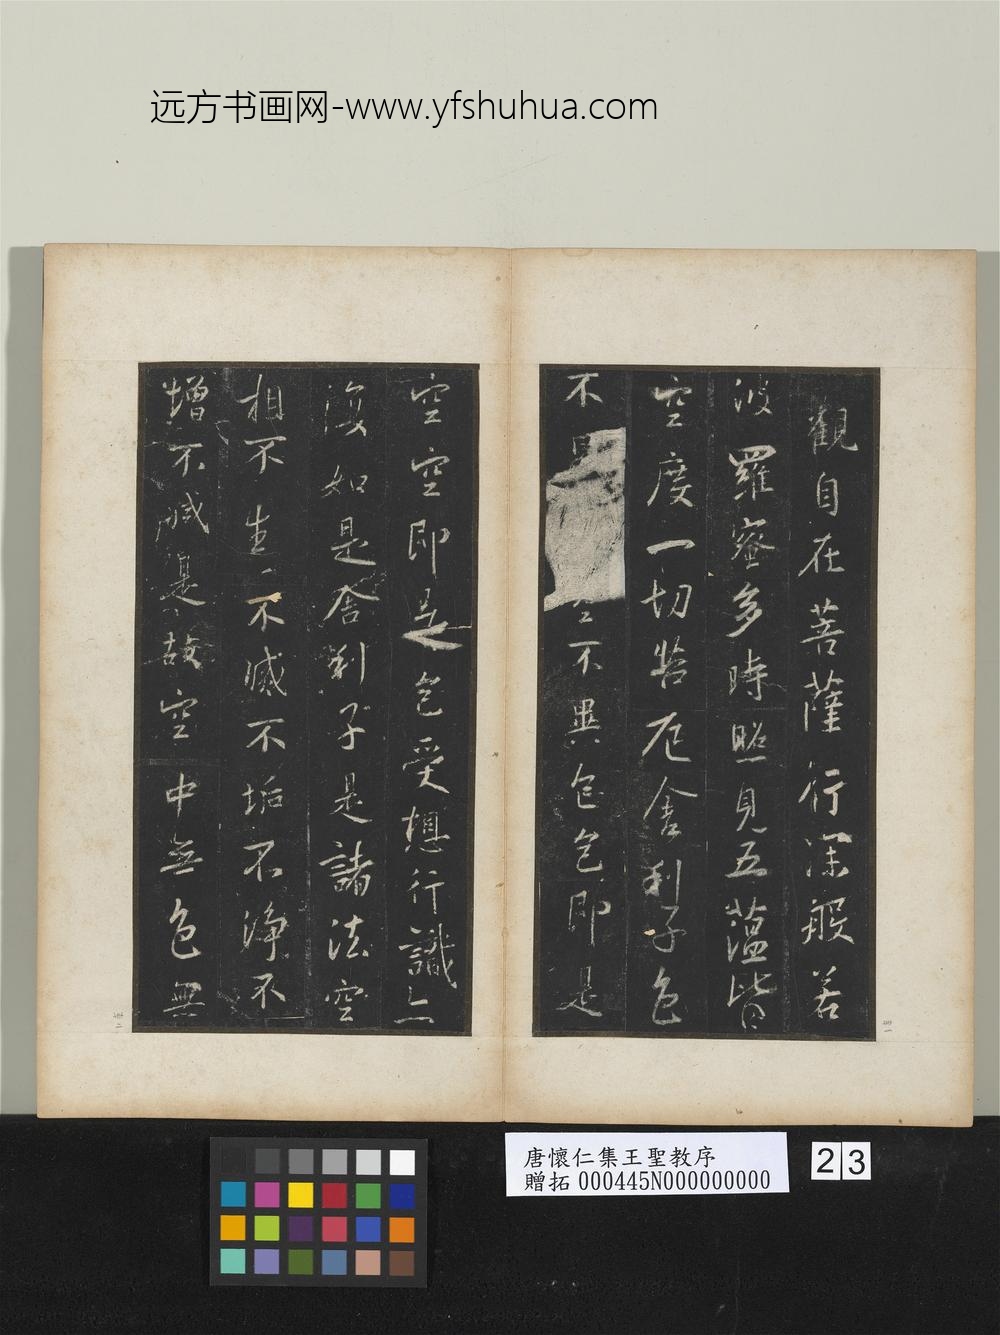 远方书画网-www.yfshuhua.com
觀自在菩薩行深般若
波羅蜜多時照見五蘊皆
空度一切苦厄舍利子色
不異空不異色色即是
空空即是色受想行識亦
復如是舍利子是諸法空
相不生不滅不垢不淨不
增不減是故空中無色無
唐懷仁集王聖教序
贈拓 000445N000000000
23